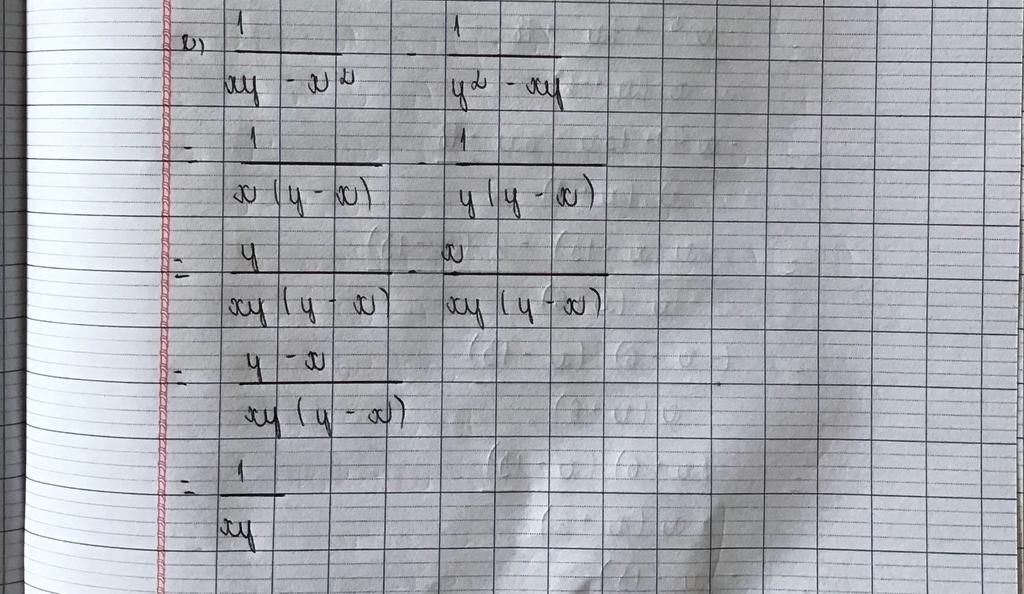 e) 1/(xy - x²) - 1/(y² - xy)
= 1/(x(y - x)) - 1/(y(y - x))
= y/(xy(y - x)) - x/(xy(y - x))
= (y - x)/(xy(y - x))
= 1/(xy)